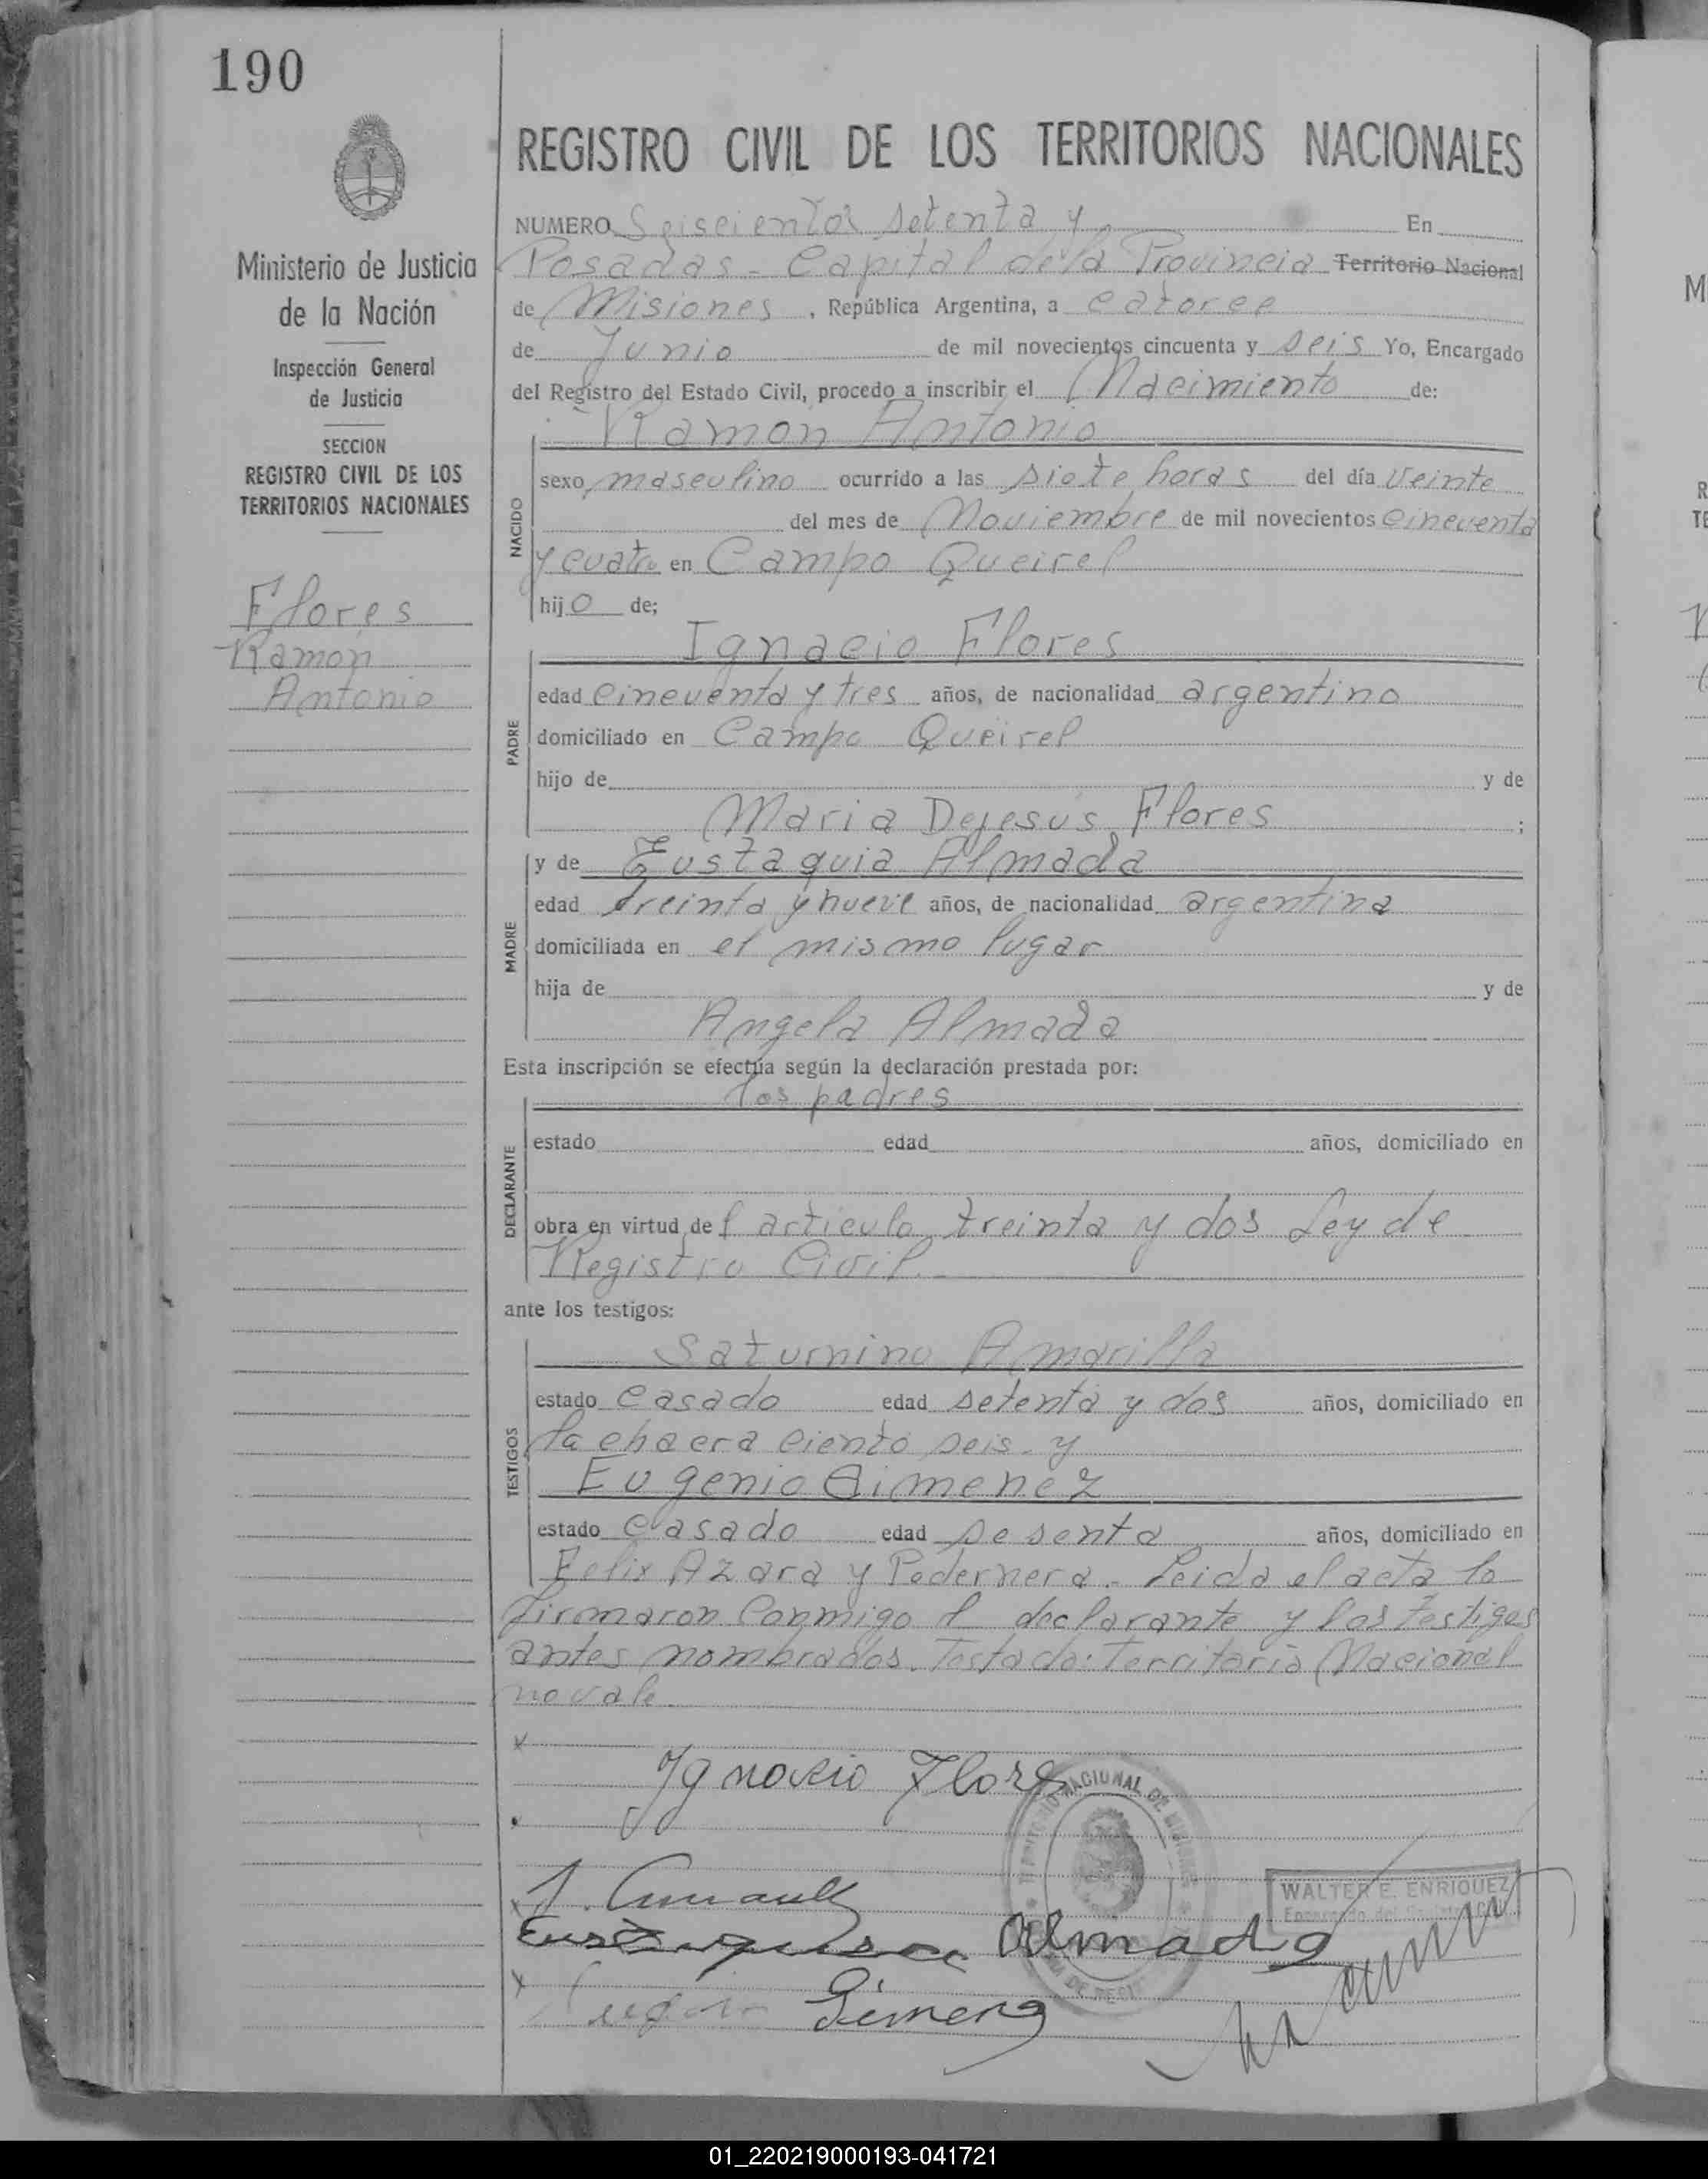 190
REGISTRO CIVIL DE LOS TERRITORIOS NACIONALES
Ministerio de Justicia
de la Nación
Inspección General
de Justicia
SECCION
REGISTRO CIVIL DE LOS
TERRITORIOS NACIONALES
Flores
Ramon
Antonio
NUMERO Seiscientos setenta y En
Posadas - Capital de la Provincia Territorio Nacional
de Misiones, República Argentina, a catorce
de Junio de mil novecientos cincuenta y seis Yo, Encargado
del Registro del Estado Civil, procedo a inscribir el Nacimiento de:
Ramon Antonio
NACIDO
sexo masculino ocurrido a las siete horas del día veinte
del mes de Noviembre de mil novecientos cincuenta
y cuatro en Campo Queirel
hijo de;
Ignacio Flores
PADRE
edad cincuenta y tres años, de nacionalidad argentino
domiciliado en Campo Queirel
hijo de y de
Maria Dejesus Flores ;
MADRE
y de Eustaquia Almada
edad treinta y nueve años, de nacionalidad argentina
domiciliada en el mismo lugar
hija de y de
Angela Almada
Esta inscripción se efectúa según la declaración prestada por:
los padres
DECLARANTE
estado edad años, domiciliado en
obra en virtud del articulo treinta y dos Ley de
Registro Civil.
ante los testigos:
TESTIGOS
Saturnino Amarilla
estado casado edad setenta y dos años, domiciliado en
la chacra ciento seis - y
Eugenio Gimenez
estado casado edad sesenta años, domiciliado en
Felix Azara y Pedernera - Leida el acta la
firmaron conmigo el declarante y los testigos
antes nombrados. Testado: Territorio Nacional
no vale.
Ignacio Flores
WALTER E. ENRIQUEZ
Eustaquia Almada
Gimenez
01_220219000193-041721